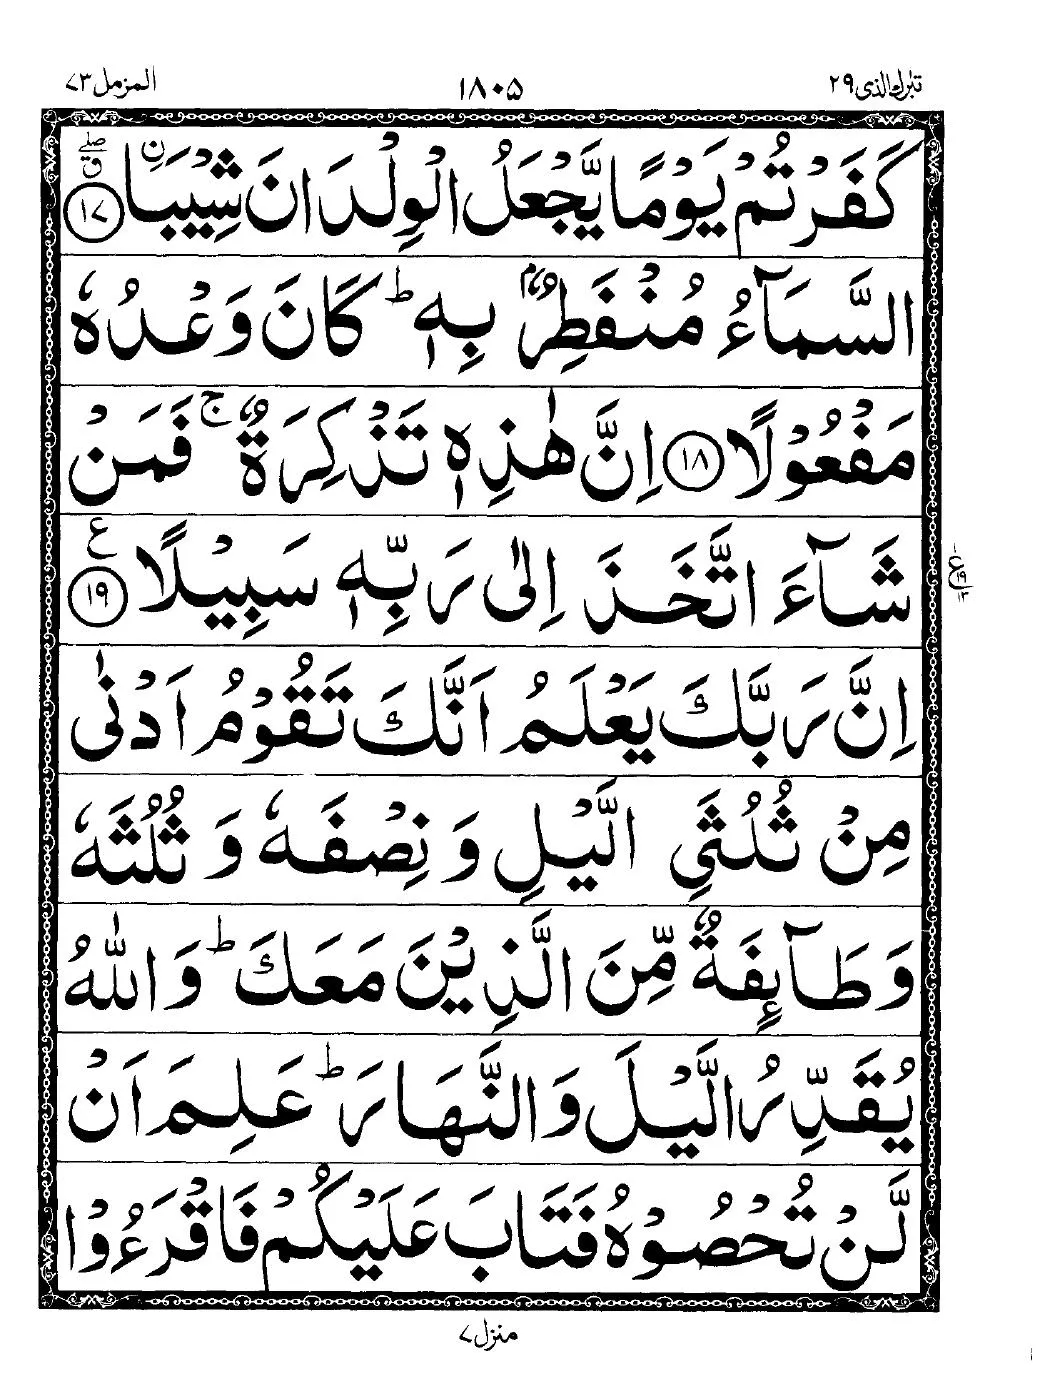 تبٰرك الذی ٢٩ ١٨٠۵ المزمل ٧٣
كَفَرْتُمْ يَوْمًا يَّجْعَلُ الْوِلْدَانَ شِيْبَاۨ ۝١٧ صلے ق
السَّمَآءُ مُنْفَطِرٌۢ بِهٖ ؕ كَانَ وَعْدُهٗ
مَفْعُوْلًا ۝١٨ اِنَّ هٰذِهٖ تَذْكِرَةٌ ۚ فَمَنْ
شَآءَ اتَّخَذَ اِلٰى رَبِّهٖ سَبِيْلًا ۝١٩ ع
ع ١٩ ١٣
اِنَّ رَبَّكَ يَعْلَمُ اَنَّكَ تَقُوْمُ اَدْنٰى
مِنْ ثُلُثَيِ الَّيْلِ وَنِصْفَهٗ وَثُلُثَهٗ
وَطَآىِٕفَةٌ مِّنَ الَّذِيْنَ مَعَكَ ؕ وَاللّٰهُ
يُقَدِّرُ الَّيْلَ وَالنَّهَارَ ؕ عَلِمَ اَنْ
لَّنْ تُحْصُوْهُ فَتَابَ عَلَيْكُمْ فَاقْرَءُوْا
منزل ٧